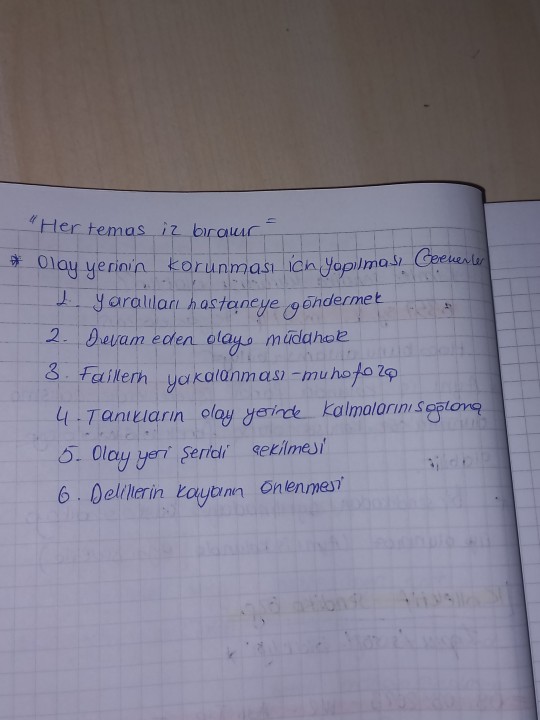 "Her temas iz bırakır"
* Olay yerinin korunması icn yapılması Gerekenler
1. yaralıları hastaneye göndermek
2. Devam eden olaya müdahale
3. Faillerin yakalanması - muhafaza
4. Tanıkların olay yerinde kalmalarını sağlama
5. Olay yeri şeridi çekilmesi
6. Delillerin kaybının önlenmesi